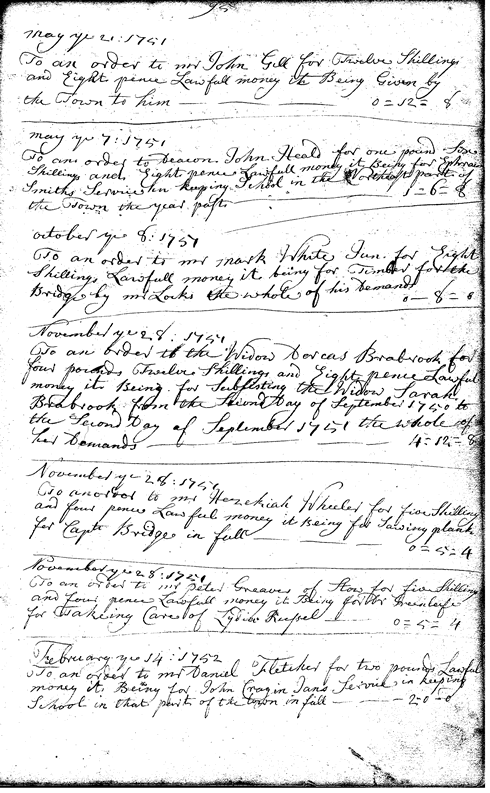 95
may ye 2: 1751
To an order to mr John Gell for Twelve Shillings
and Eight pence Lawfull money it Being Given by
the Town to him 0=12= 8
may ye 7: 1751
To an order to Deacon John Heald for one pound Six
Shillings and Eight pence Lawfull money it Being for Ephraim
Smiths Service in keeping School in the Northeast part of
the Town the year past 1=6=8
october ye 8: 1751
To an order to mr mark White Jun. for Eight
Shillings Lawfull money it being for Timber for the
Bridge by mr Locks the whole of his Demands 0-8=0
November ye 28: 1751
To an order to the Widow Dorcas Brabrook for
four pounds Twelve Shillings and Eight pence Lawfull
money it Being for Subsisting the Widow Sarah
Brabrook from the Second Day of September 1750 to
the Second Day of September 1751 the whole of
her Demands 4=12=8
November ye 28: 1751
To an order to mr Hezekiah Wheeler for five Shilling
and four pence Lawful money it Being for Sawing plank
for Capts Bridge in full 0=5=4
November ye 28: 1751
To an order to mr Peter Greaves of Stow for five Shilling
and four pence Lawfull money it Being for Greenlefe
for Takeing Care of Lydia Russel 0=5= 4
February ye 14: 1752
To an order to mr Daniel Fletcher for two pounds Lawful
money it Being for John Cragin Jans Service in keeping
School in that part of the town in full 2-0-0